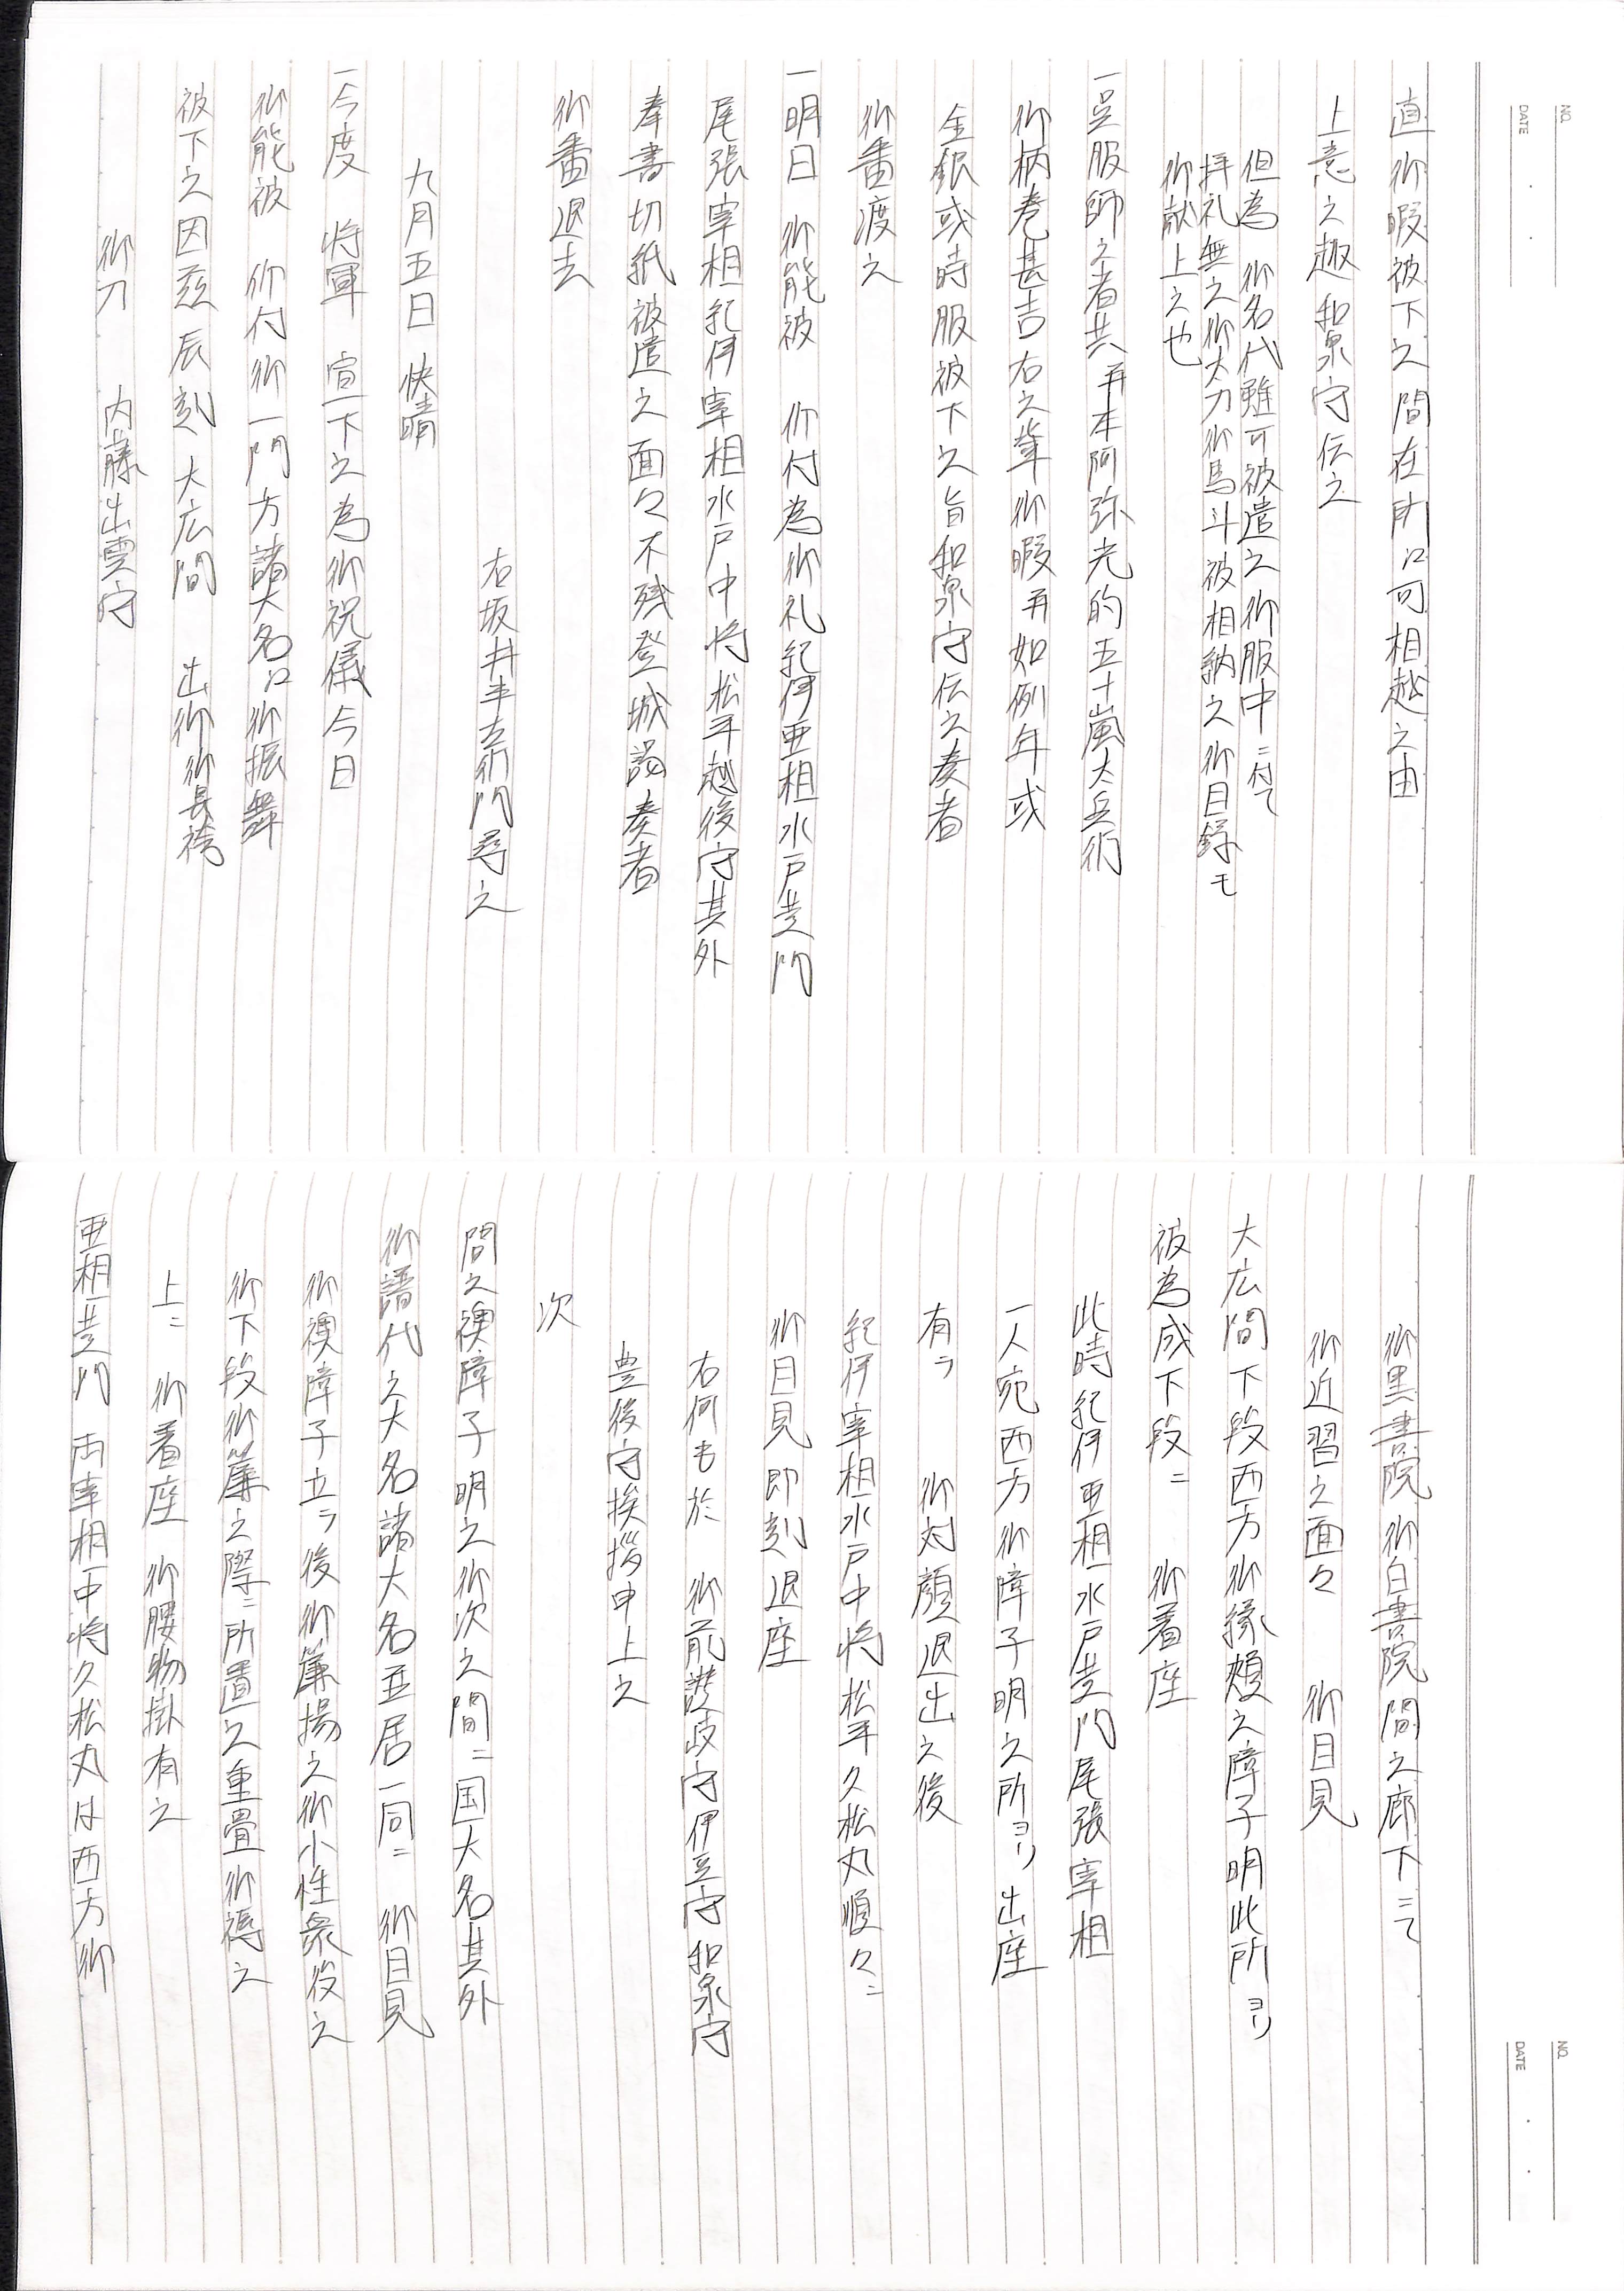 NO.
DATE
直御暇被下之間在所江可相越之由
上意之趣和泉守伝之
但為 御名代雖可被遣之御服中ニ付て
拝礼無之御太刀御馬斗被相納之御目録も
御献上之也
一呉服師之者共并本阿弥光的五十嵐太兵衛
御柄巻甚吉右之輩御暇并如例年或
金銀或時服被下之旨和泉守伝之奏者
御番渡之
一明日 御能被 仰付為御礼紀伊亜相水戸黄門
尾張宰相紀伊宰相水戸中将松平越後守其外
奉書切紙被遣之面々不残登城謁奏者
御番退去
右坂井半左衛門尋之
九月五日 快晴
一今度 将軍 宣下之為御祝儀今日
御能被 仰付御一門方諸大名江御振舞
被下之因茲辰刻 大広間 出御御長袴
御刀 内藤出雲守
NO.
DATE
御黒書院御白書院間之廊下ニて
御近習之面々 御目見
大広間下段西方御縁頬之障子明此所ヨリ
被為成下段ニ 御着座
此時紀伊亜相水戸黄門尾張宰相
一人宛西方御障子明之所ヨリ出座
有ラ 御対顔退出之後
紀伊宰相水戸中将松平久松丸順々ニ
御目見即刻退座
右何も於 御前讃岐守伊豆守和泉守
豊後守挨拶申上之
次
間之襖障子明之御次之間ニ国大名其外
御譜代之大名諸大名並居一同ニ 御目見
御襖障子立ラ後御簾揚之御小性衆役之
御下段御簾之際ニ所置之重畳御褥之
上ニ 御着座 御腰物掛有之
亜相黄門 両宰相中将久松丸は西方御